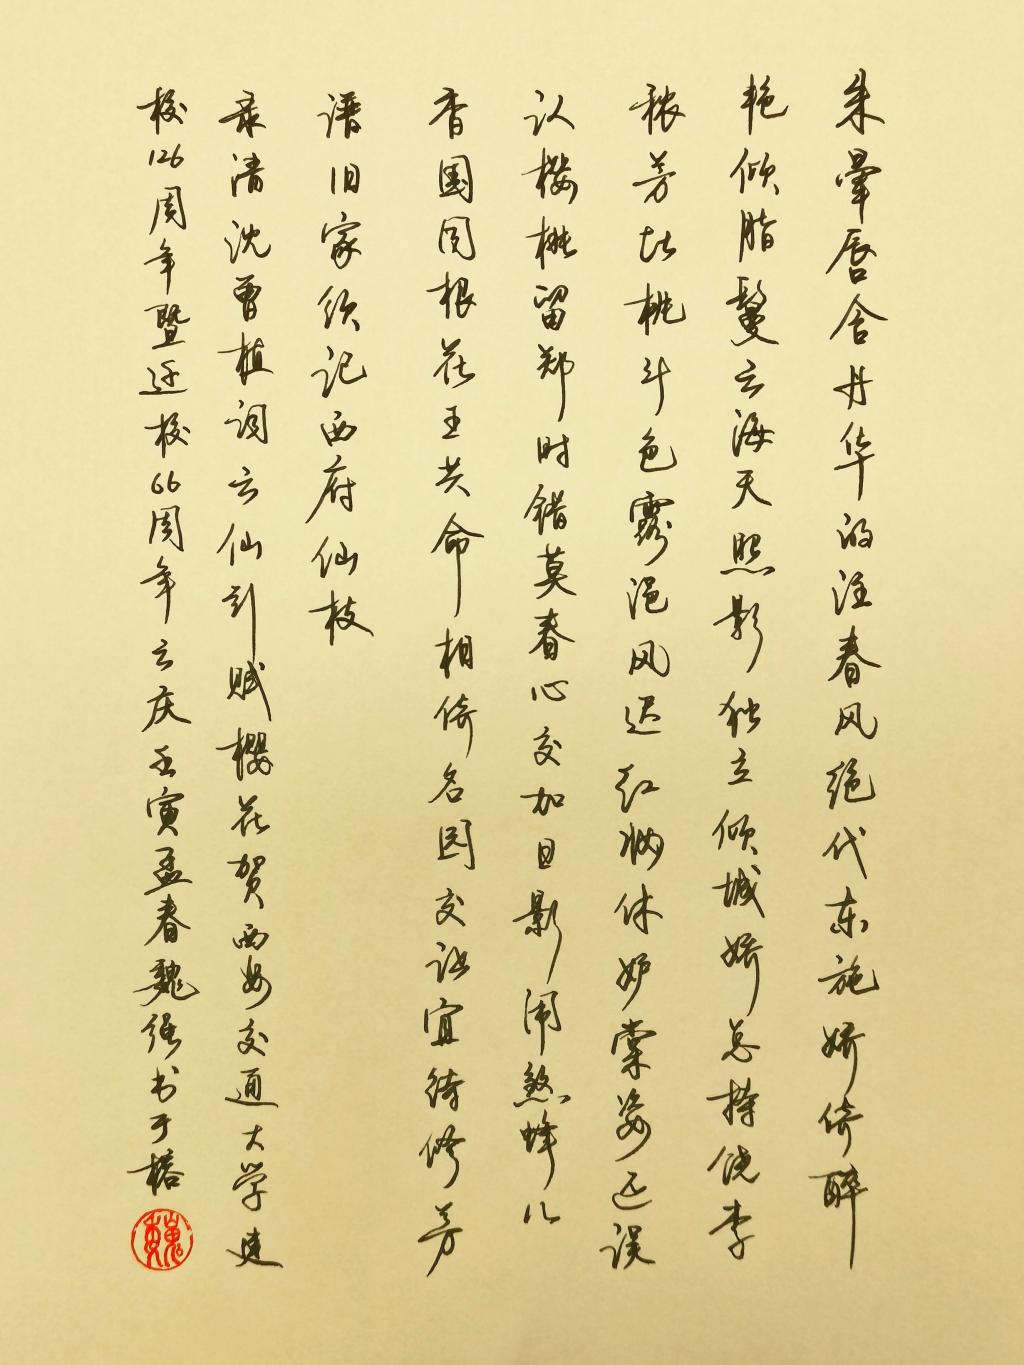 朱晕唇含丹华的注春风绝代东施娇倚醉
艳倾脂鬟云海天照影独立倾城娇总持饶李
秾芳比桃斗色雾浥风迟红妆休妒棠姿还误
认樱桃留郑时错莫春心交加日影闹煞蜂儿
香国同根花王共命相倚名园交让宜待修芳
谱旧家须记西府仙枝
录清沈曾植词云仙引赋樱花贺西安交通大学建
校126周年暨迁校66周年云庆壬寅孟春魏强书于榕
魏